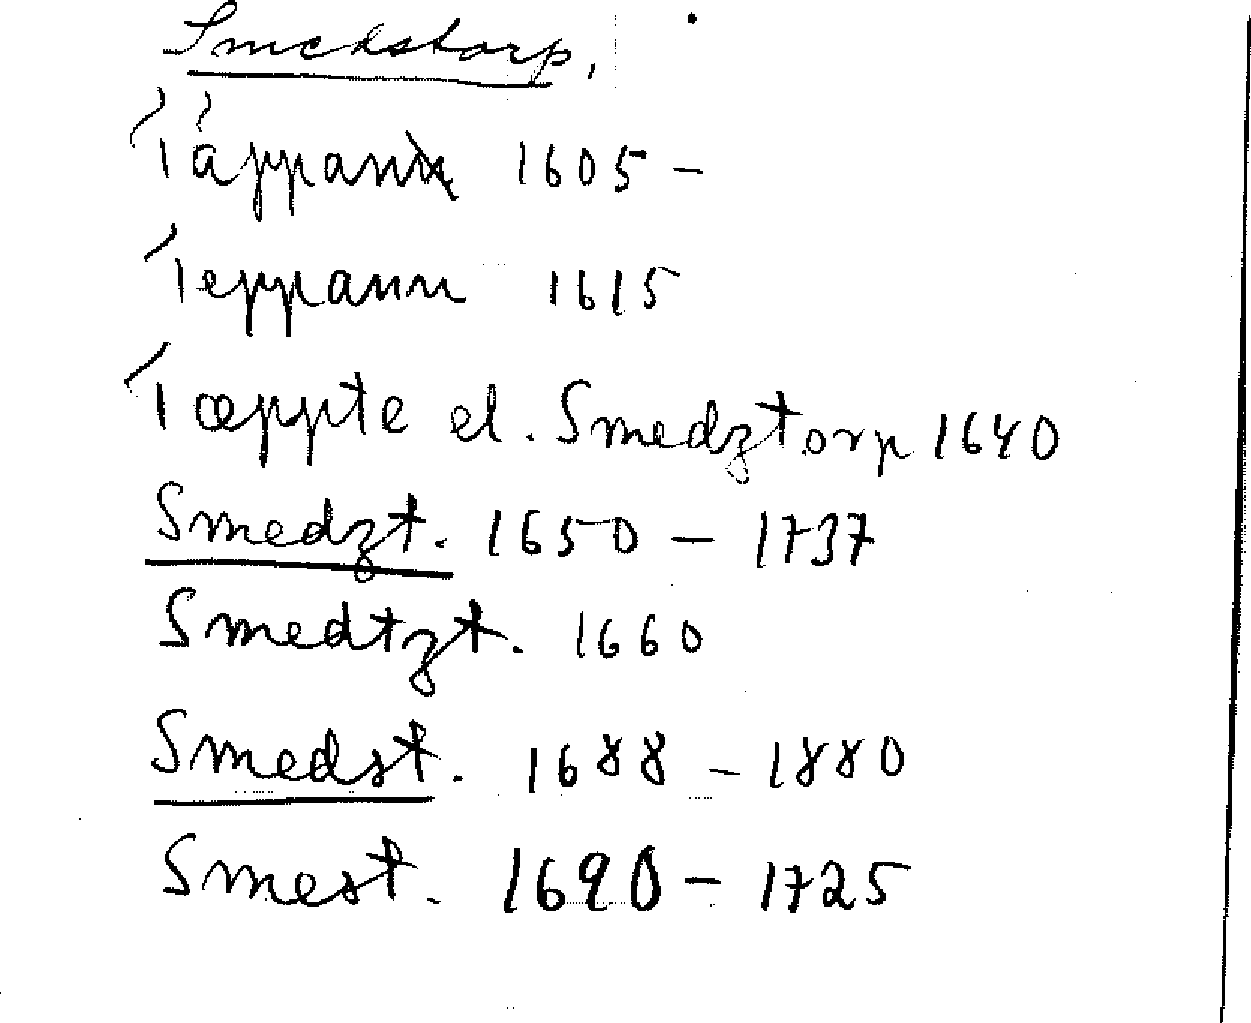 Smedstorp.
Täppann 1605 -
Teppann 1615
Tæppte el. Smedztorp 1640
Smedzt. 1650 - 1737
Smedtzt. 1660
Smedst. 1688 - 1880
Smest. 1690 - 1725